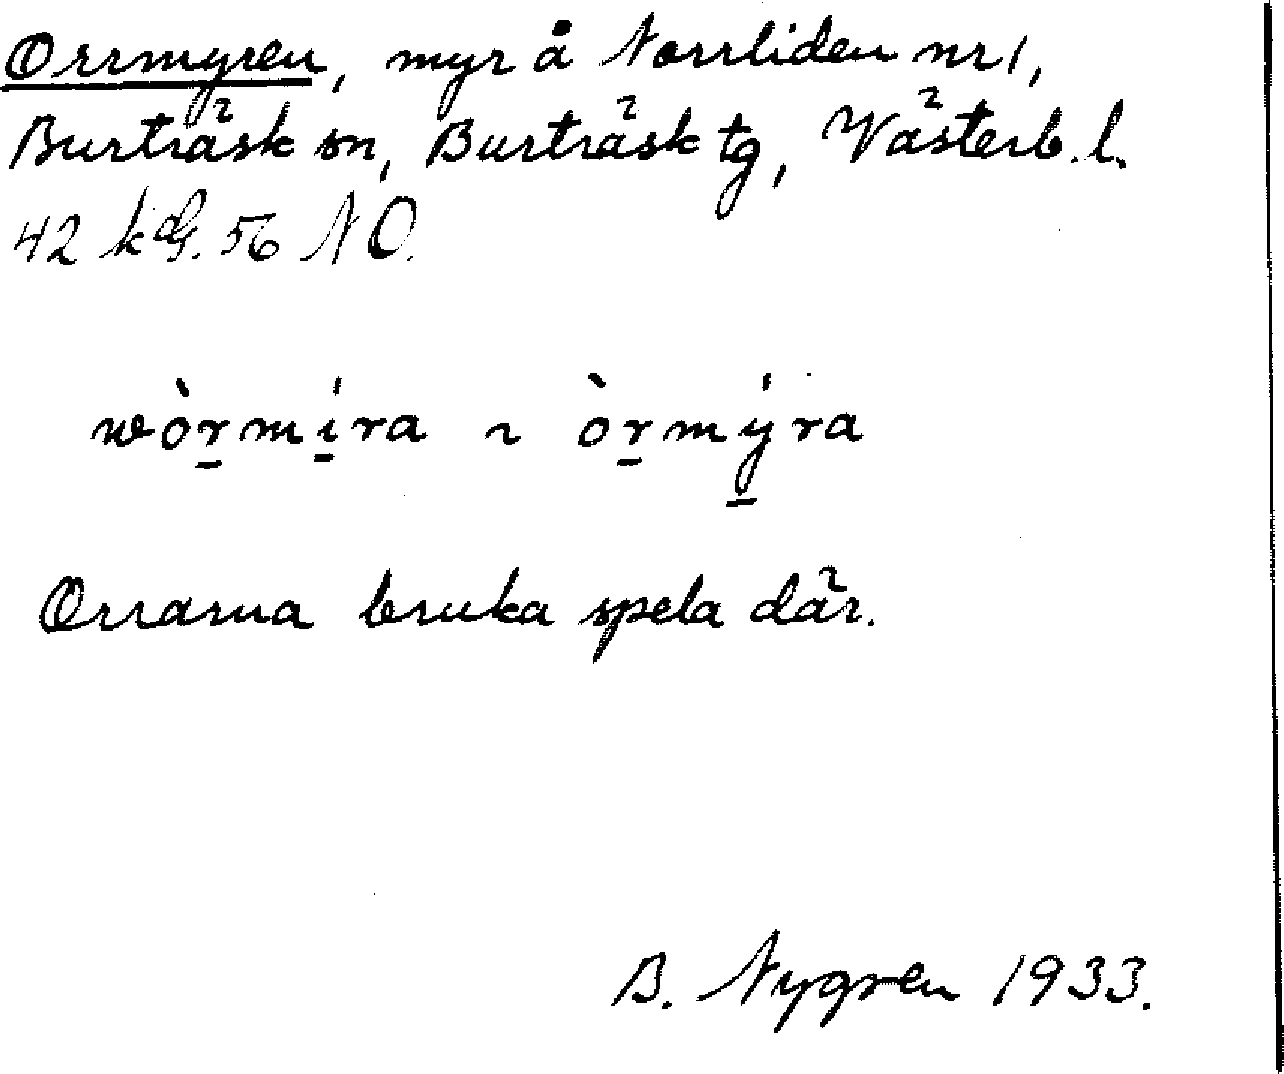 Orrmyren, myr å Norrliden nr 1,
Burträsk sn, Burträsk tg, Västerb. l.
42 kbl. 56 NO.
wòr̲mí̲ra ~ òr̲mý̲ra
Orrarna bruka spela där.
B. Nygren 1933.